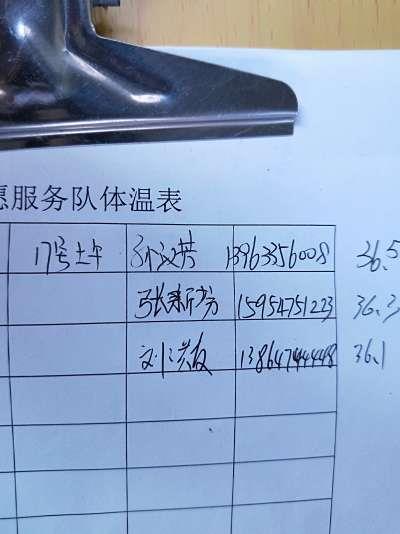 愿服务队体温表
17号上午 孙汉芳 13963356008 36.5
张新芳 15954751223 36.3
刘洪友 13864744448 36.1